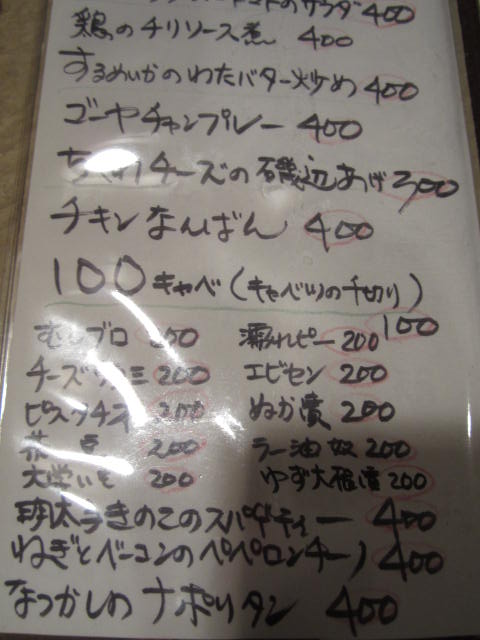 トマトのサラダ 400
鶏のチリソース煮 400
するめいかのわたバター炒め 400
ゴーヤチャンプルー 400
ちくわチーズの磯辺あげ 300
チキンなんばん 400
100キャベ(キャベツの千切り)
100
むしブロ 200 濡れピー 200
チーズ 200 エビセン 200
ピスタチオ 200 ぬか漬 200
200 ラー油奴 200
大学いも 200 ゆず大根漬 200
明太きのこのスパゲティー 400
ねぎとベーコンのペペロンチーノ 400
なつかしのナポリタン 400